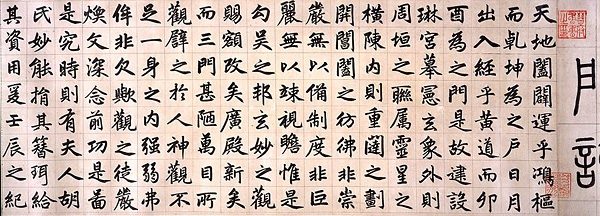 天地闔闢運乎鴻樞
而乾坤為之戶日月
出入經乎黃道而卯
酉為之門是故建設
琳宮摹憲玄象外則
周垣之聯屬靈星之
橫陳內則重闥之劃
開閶闔之彷彿非崇
嚴無以備制度非巨
麗無以竦視瞻惟是
勾吳之邦玄妙之觀
賜額改矣廣殿新矣
而三門甚陋萬目所
觀譬之於人神觀不
足一身之內强弱弗
侔非久歟觀之徒嚴
煥文深念前功是啚
是究時則有夫人胡
氏妙能捐其簪珥給
其資用爰壬辰之紀